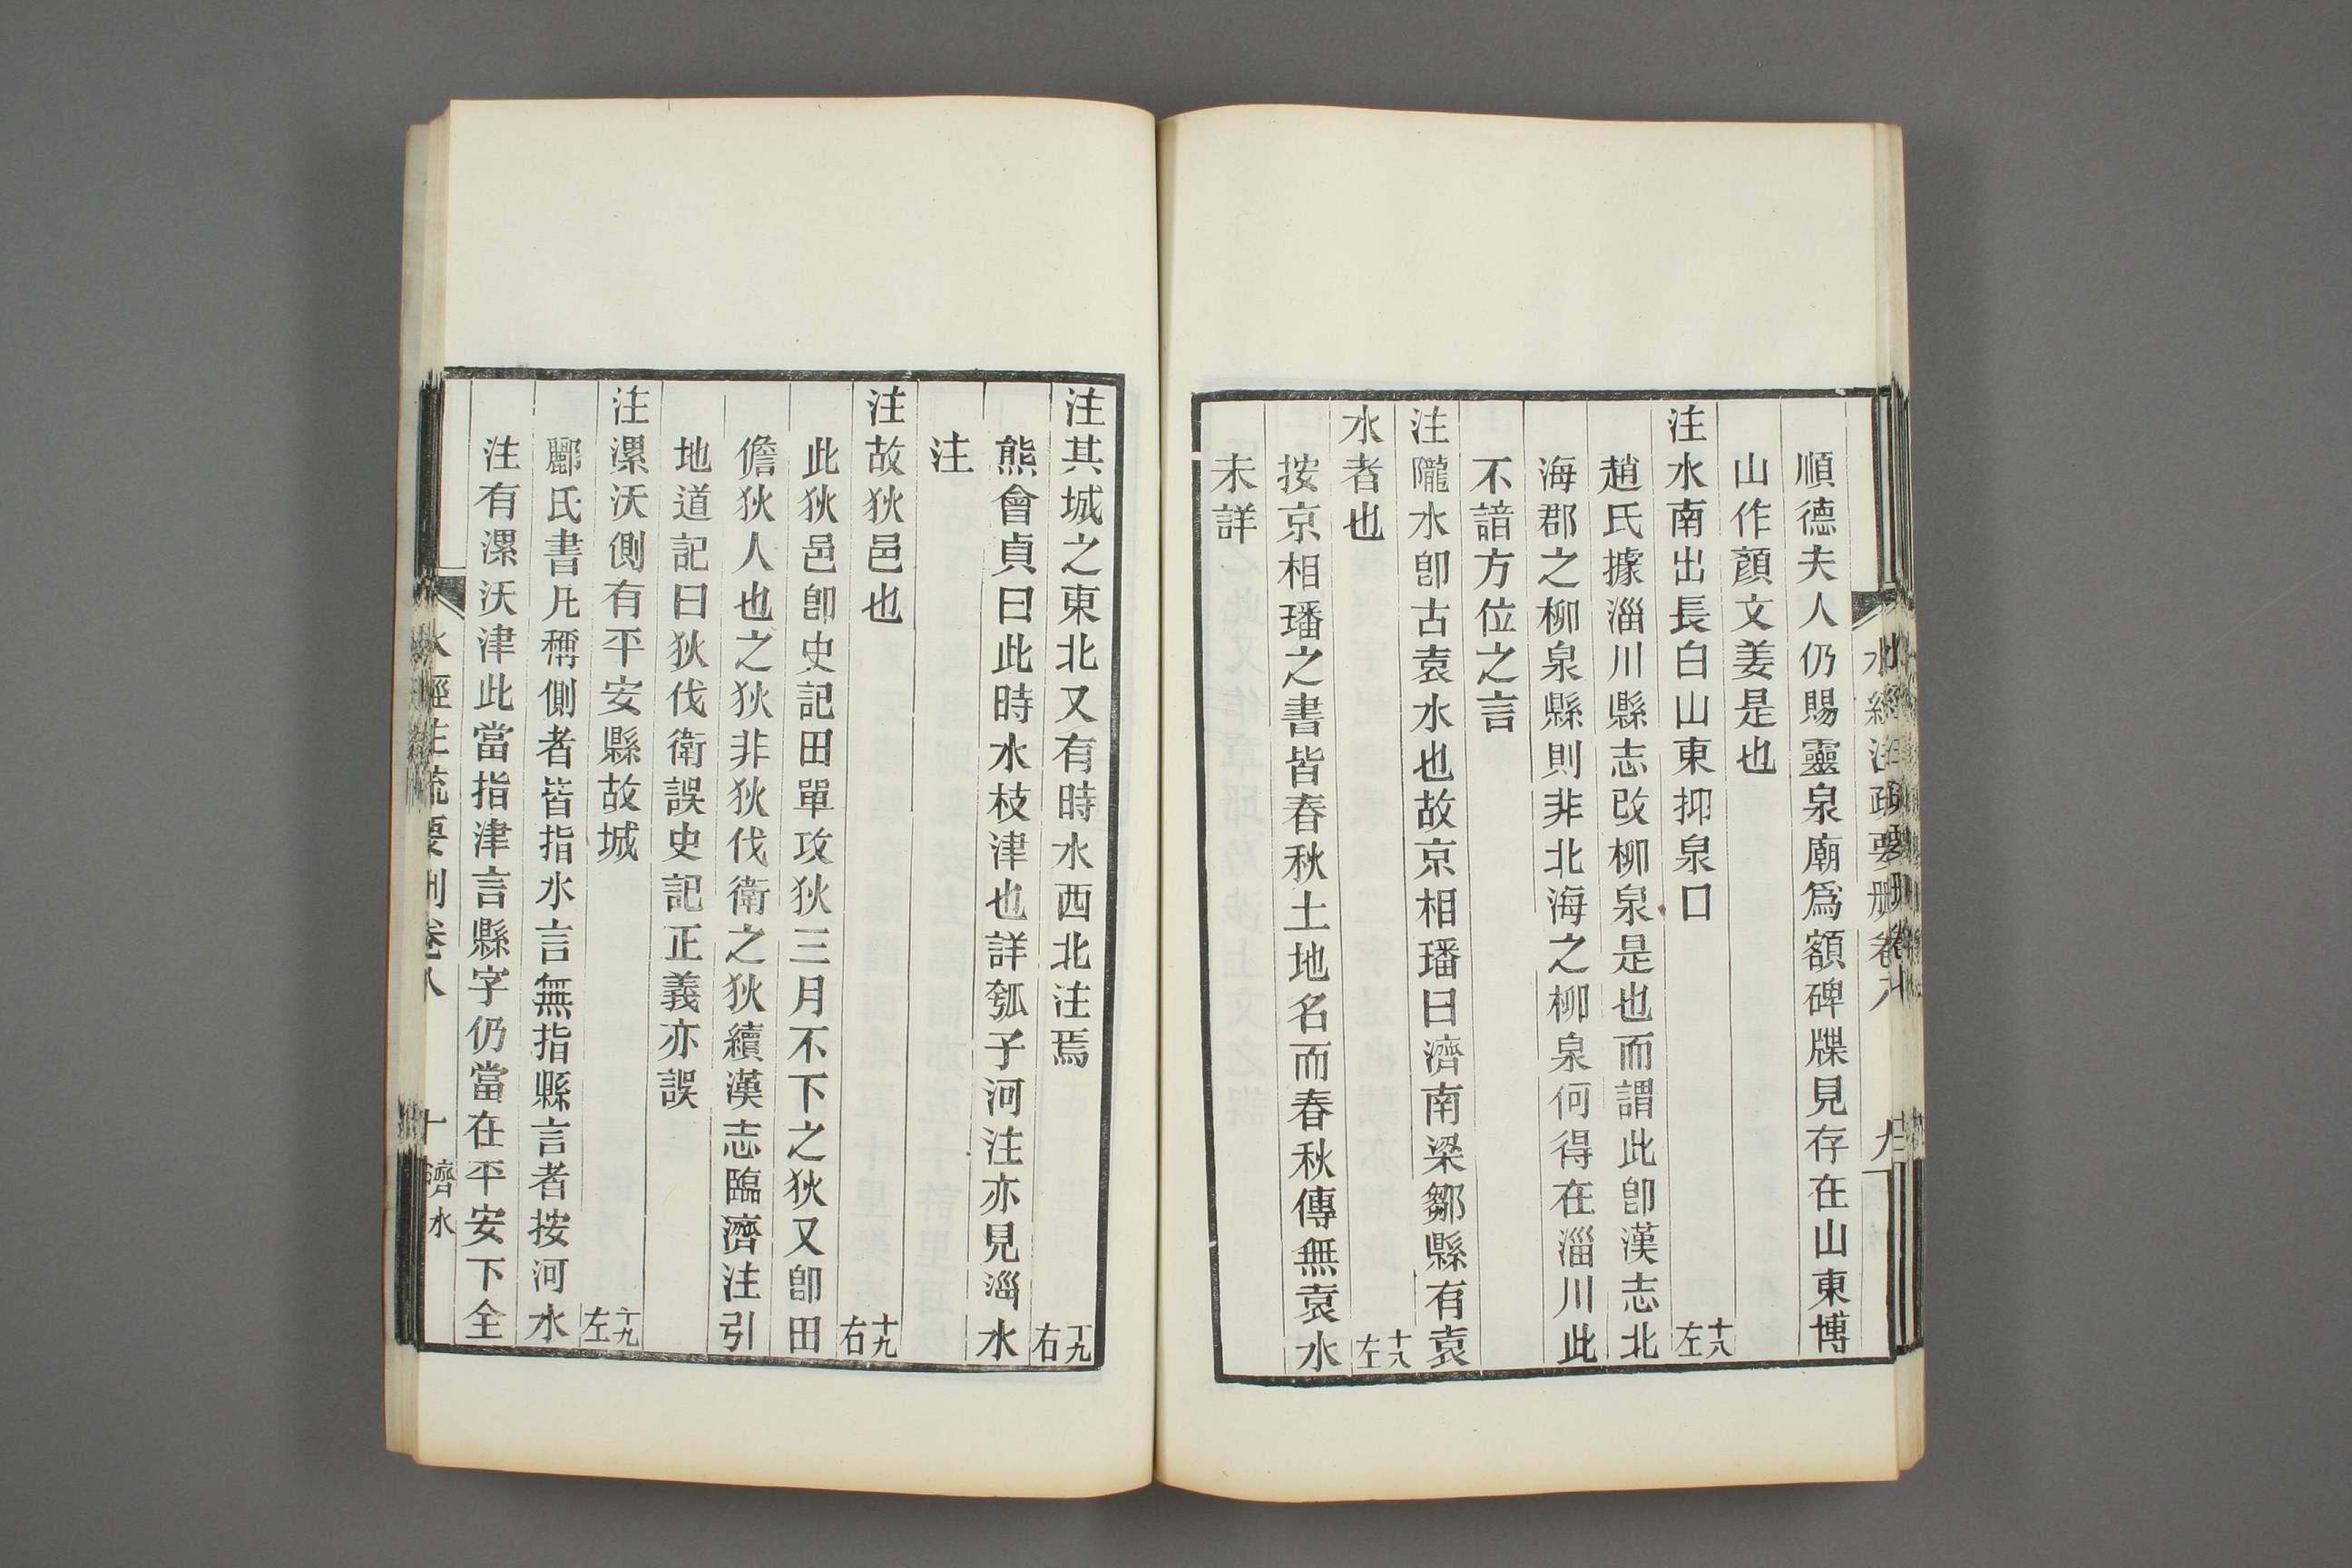 水經注疏要刪卷八
九
順德夫人仍賜靈泉廟爲額碑牒見存在山東博
山作顏文姜是也
注水南出長白山東抑泉口 十八左
趙氏據淄川縣志改柳泉是也而謂此卽漢志北
海郡之柳泉縣則非北海之柳泉何得在淄川此
不諳方位之言
注隴水卽古袁水也故京相璠曰濟南梁鄒縣有袁
水者也 十八左
按京相璠之書皆春秋土地名而春秋傳無袁水
未詳
注其城之東北又有時水西北注焉 十九右
熊會貞曰此時水枝津也詳瓠子河注亦見淄水
注
注故狄邑也 十九右
此狄邑卽史記田單攻狄三月不下之狄又卽田
儋狄人也之狄非狄伐衛之狄續漢志臨濟注引
地道記曰狄伐衛誤史記正義亦誤
注漯沃側有平安縣故城 十九左
酈氏書凡稱側者皆指水言無指縣言者按河水
注有漯沃津此當指津言縣字仍當在平安下全
水經注疏要刪卷八
十 濟水